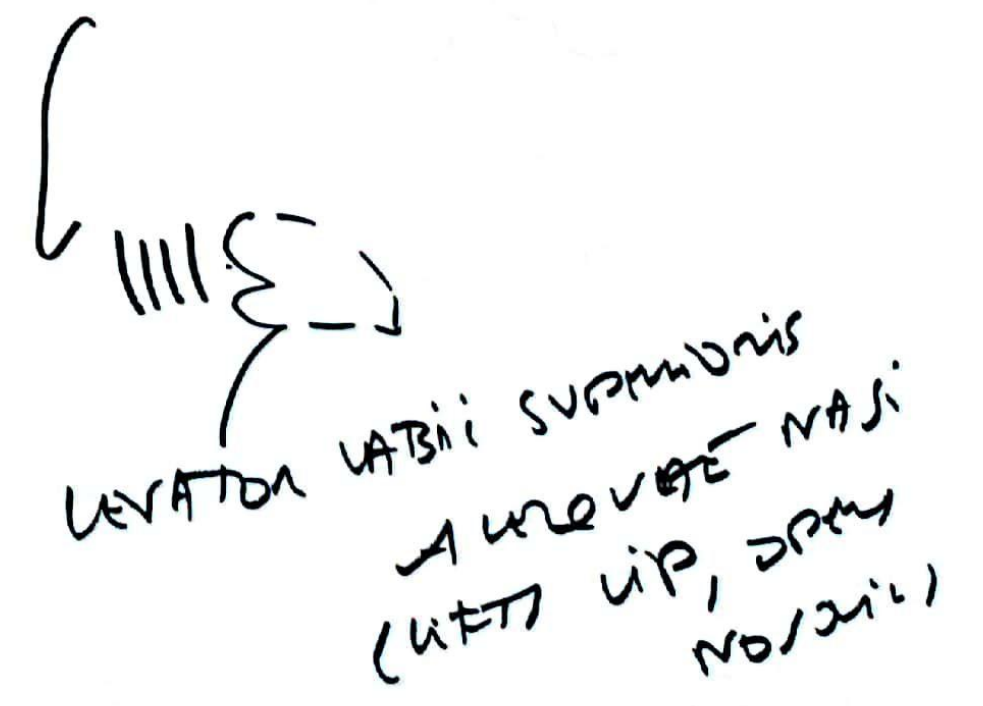 LEVATOR LABII SUPERIORIS
ALAEQUAE NASI
(LIFTS LIP, OPENS
NOSTRIL)